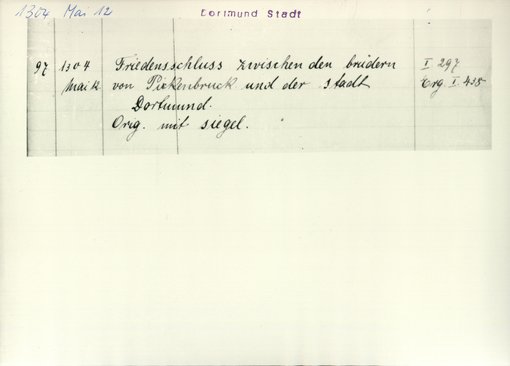 1304 Mai 12 Dortmund Stadt
97 1304 Friedensschluss zwischen den brüdern I 297
Mai 12. von Pickenbruck und der stadt Erg. I. 438
Dortmund.
Orig. mit siegel.